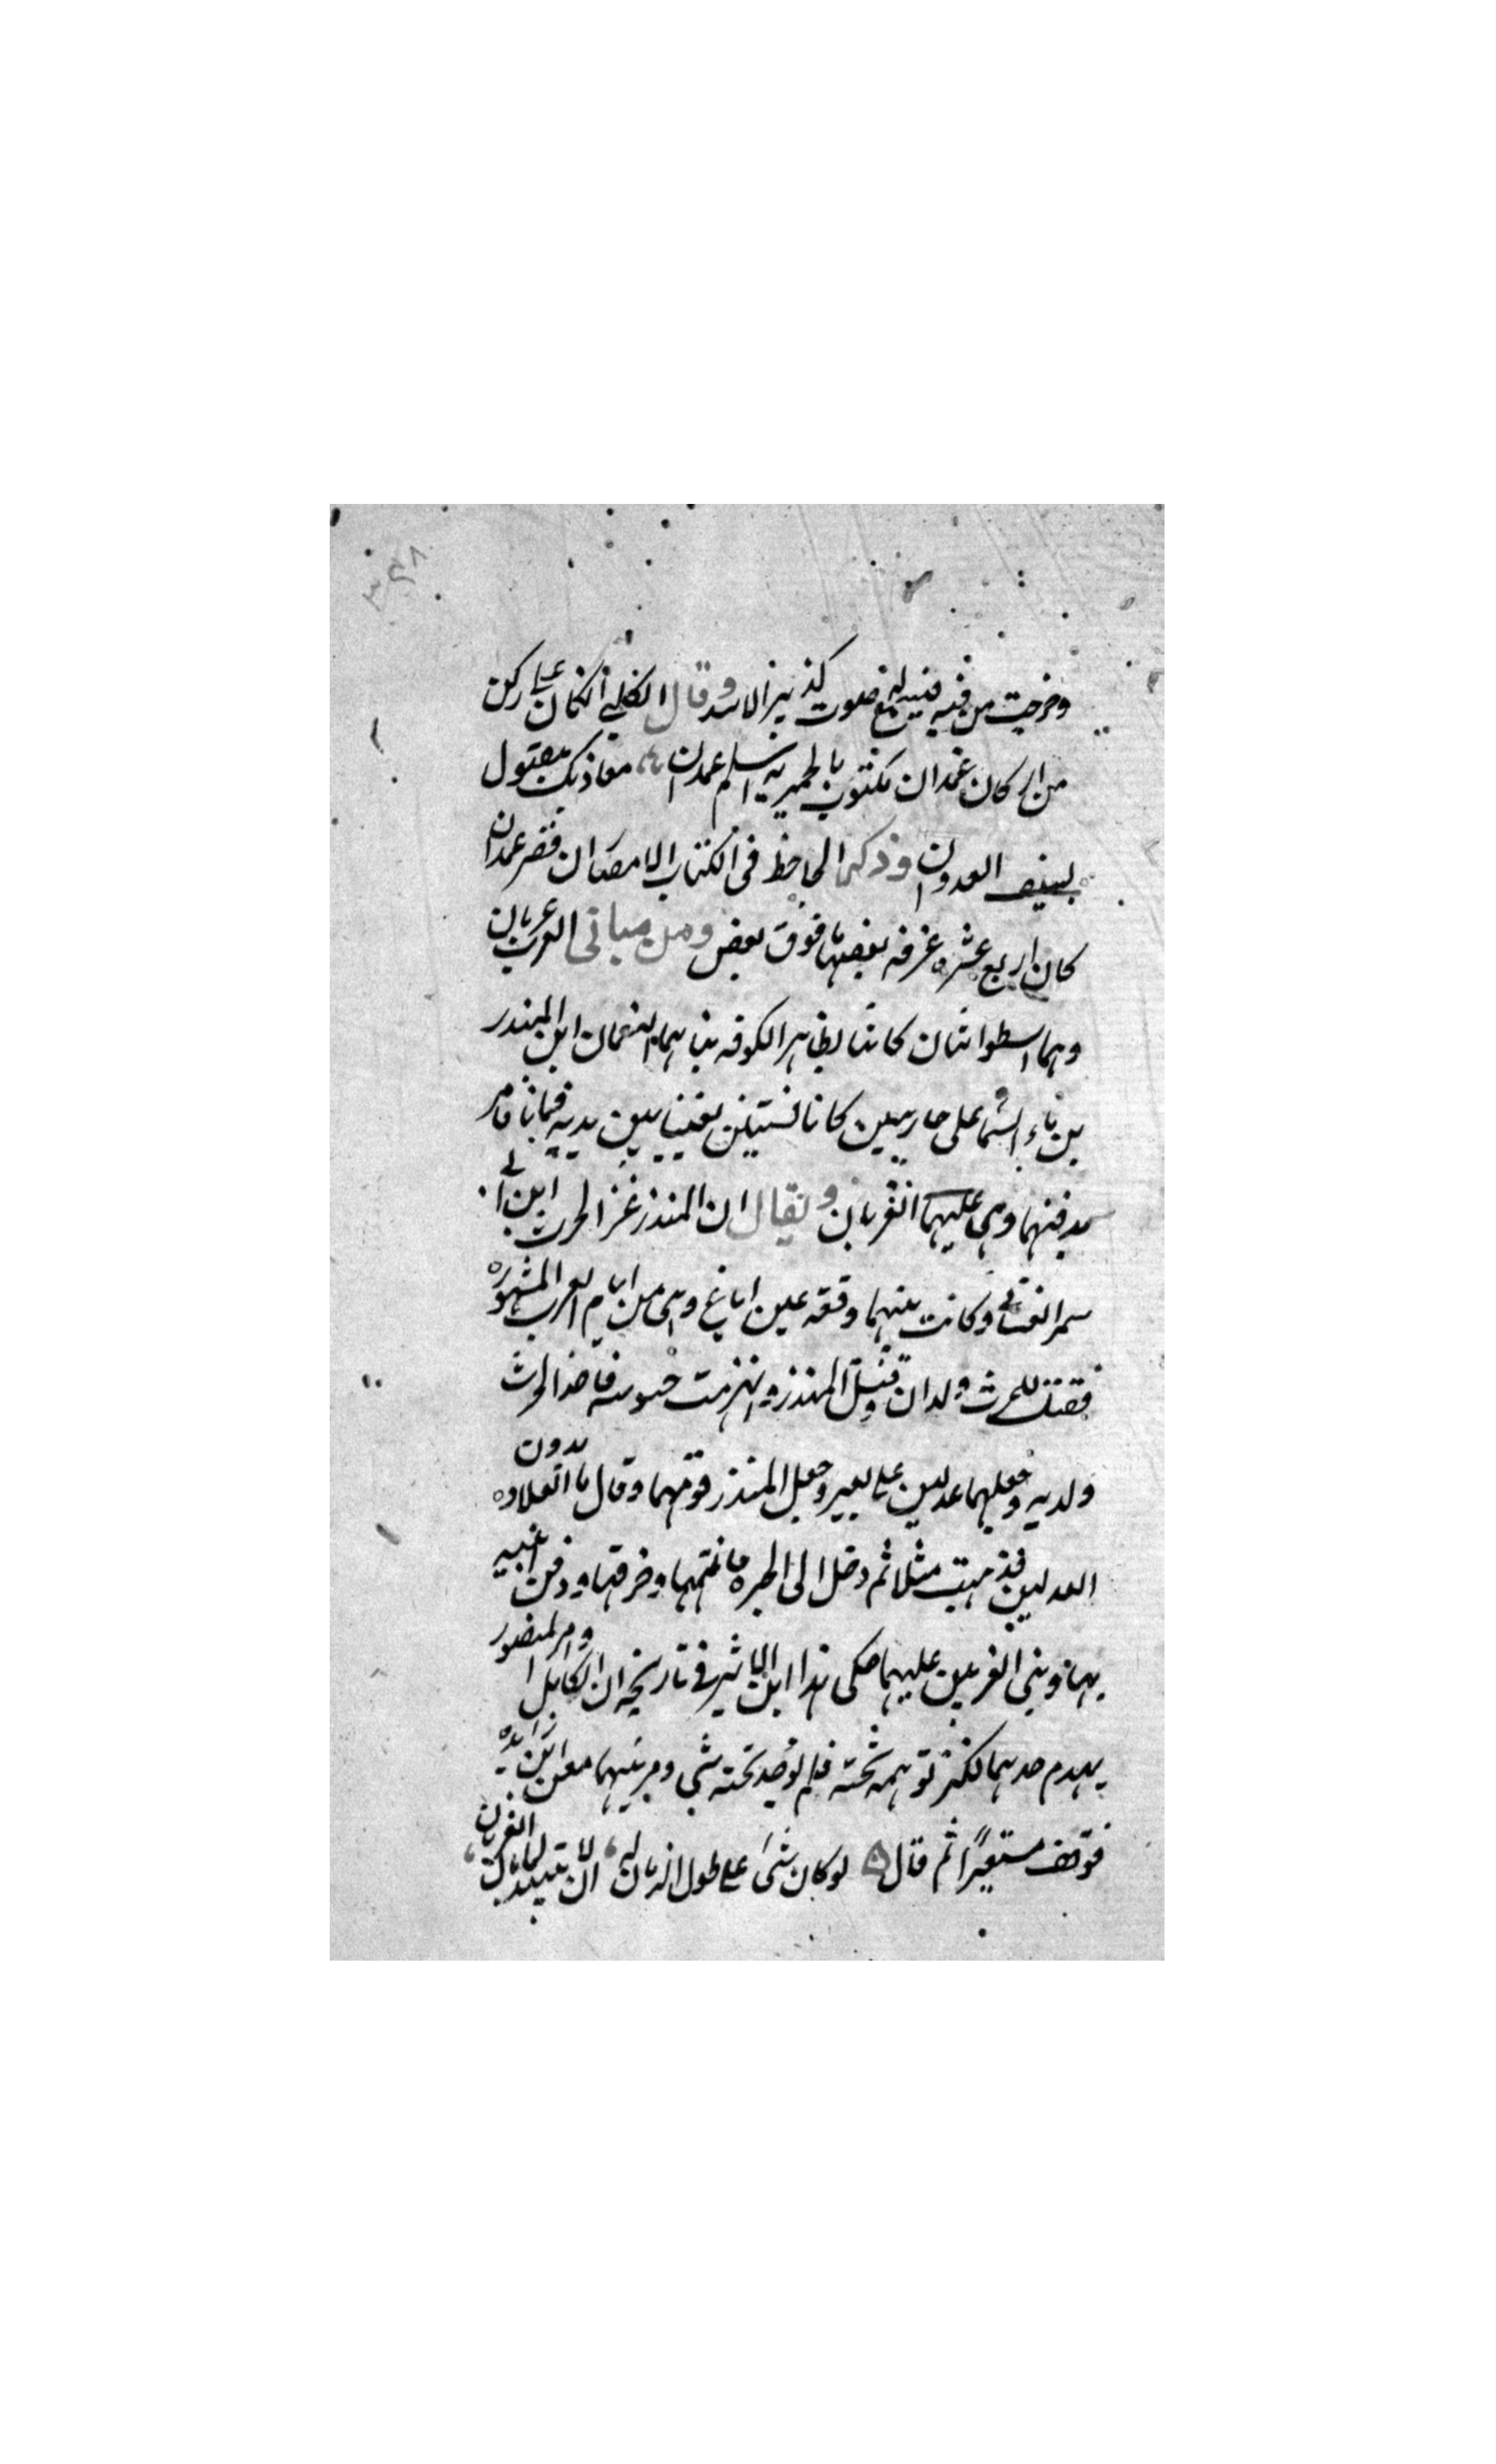 وخرجت من فيه فيسمع صوت كذئير الاسد وقال الكلبى انكان على ركن
من اركان غمدان مكتوب بالحميريه اسلم غمدان معاذيك مقتول
بسيف العدوان وذكر الجاحظ فى الكتاب الامصار ان قصر غمدان
كان اربع عشره غرفه بعضها فوق بعض ومن مبانى العرب الغريان
وهما اسطوانتان كانتا بظاهر الكوفه بناهما النعمان ابن المنذر
بن ماء السما على جاريتين كانتا قينتين يغنيان بين يديه فماتتا فامر
بدفنهما وبنى عليهما الغريان ويقال ان المنذر غزا الحرث ابن ابى
شمر الغسانى وكانت بينهما وقعه عين اباغ وهى من ايام العرب المشهوره
فقتل للحرث ولدان وقتل المنذر وانهزمت جيوشه فاخذ الحرث
ولديه وجعلهما عدلين على بعير وجعل المنذر فوقهما وقال ما العلاوه بدون
العدلين فذهبت مثلا ثم دخل الى الحيره فانتهبها وخرقها ودفن ابنيه
بها وبنى الغريين عليهما حكى هذا ابن الاثير فى تاريخه الكامل وامر المنصور
بهدم احدهما لكنز توهمه تحته فلم يوجد تحته شى ومر بهما معن ابن زائده
فوقف متعبرًا ثم قال لو كان شى على طول الزمان له ان لا يبيد لما باد الغريان